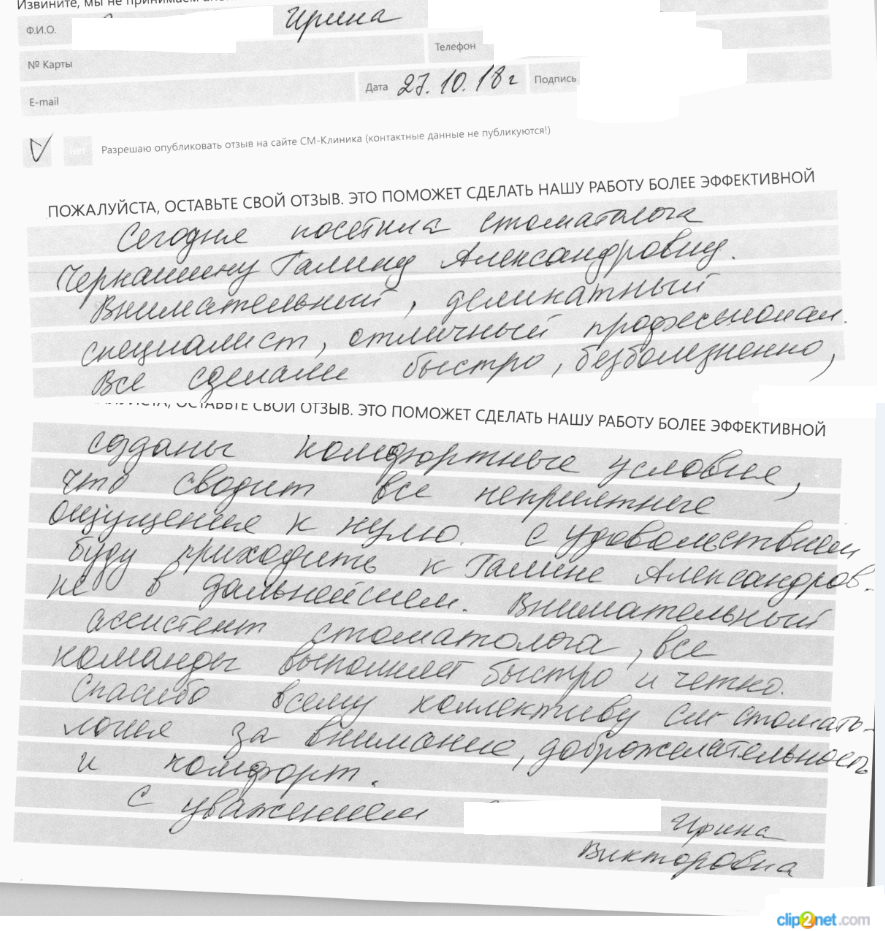 Извините, мы не принимаем
Ф.И.О. Ирина
№ Карты Телефон
E-mail Дата 27.10.18г Подпись
Разрешаю опубликовать отзыв на сайте СМ-Клиника (контактные данные не публикуются!)
ПОЖАЛУЙСТА, ОСТАВЬТЕ СВОЙ ОТЗЫВ. ЭТО ПОМОЖЕТ СДЕЛАТЬ НАШУ РАБОТУ БОЛЕЕ ЭФФЕКТИВНОЙ
Сегодня посетила стоматолога
Чернашину Галину Александровну.
Внимательный, деликатный
специалист, отличный профессионал.
Все сделали быстро, безболезненно,
ОСТАВЬТЕ СВОЙ ОТЗЫВ. ЭТО ПОМОЖЕТ СДЕЛАТЬ НАШУ РАБОТУ БОЛЕЕ ЭФФЕКТИВНОЙ
созданы комфортные условия,
что сводит все неприятные
ощущения к нулю. С удовольствием
буду приходить к Галине Александров-
не в дальнейшем. Внимательный
ассистент стоматолога, все
команды выполняет быстро и четко.
Спасибо всему коллективу См стомато-
логия за внимание, доброжелательность
и комфорт.
С уважением Ирина
Викторовна
clip2net.com